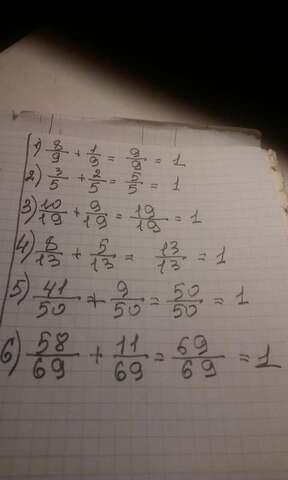 1) 8/9 + 1/9 = 9/9 = 1
2) 3/5 + 2/5 = 5/5 = 1
3) 10/19 + 9/19 = 19/19 = 1
4) 8/13 + 5/13 = 13/13 = 1
5) 41/50 + 9/50 = 50/50 = 1
6) 58/69 + 11/69 = 69/69 = 1